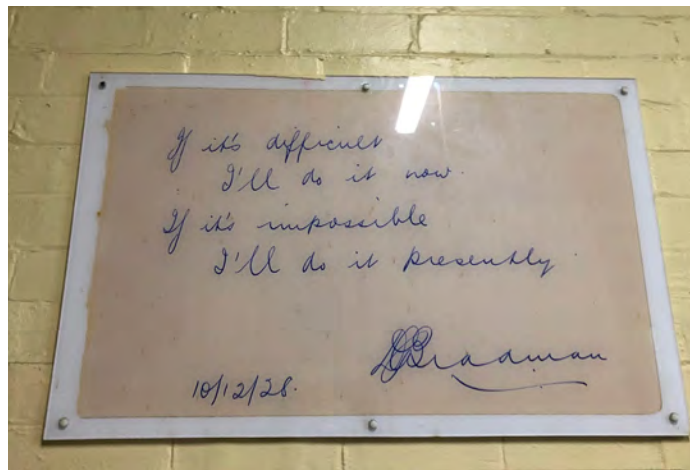 If it's difficult
I'll do it now.
If it's impossible
I'll do it presently.
DGBradman
10/12/28.